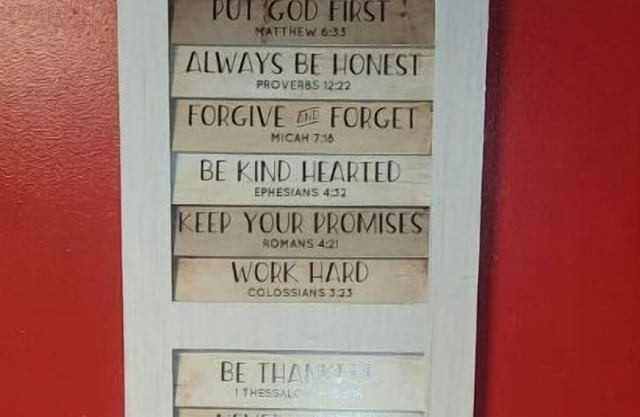 PUT GOD FIRST
MATTHEW 6:33
ALWAYS BE HONEST
PROVERBS 12:22
FORGIVE AND FORGET
MICAH 7:18
BE KIND HEARTED
EPHESIANS 4:32
KEEP YOUR PROMISES
ROMANS 4:21
WORK HARD
COLOSSIANS 3:23
BE
1